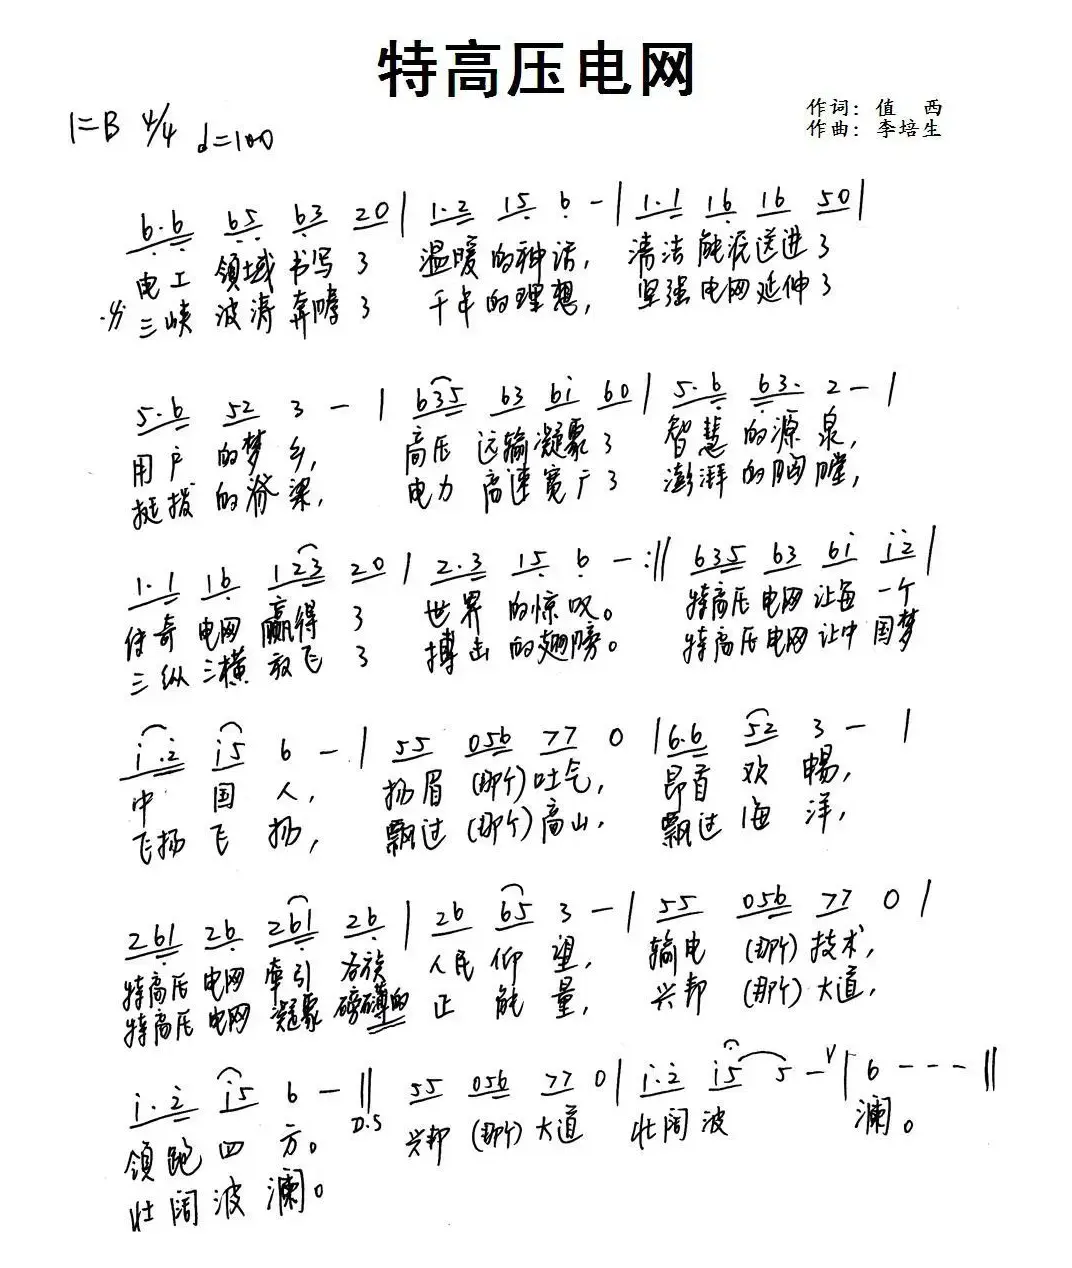 特高压电网
作词：值 西
作曲：李培生
1=B 4/4 ♩=100
6·6 65 63 20 | 1·2 15 6 - | 1·1 16 16 50 |
电工 领域 书写 了 温暖 的神话， 清洁 能源送进了
三峡 波涛 奔嗥 了 千年的理想， 坚强电网延伸了
5·6 52 3 - | 635 63 6i 60 | 5·6 63· 2 - |
用户 的梦乡， 高压 运输凝聚了 智慧 的源泉，
挺拔 的脊梁， 电力 高速宽广了 澎湃 的胸膛，
1·1 16 123 20 | 2·3 15 6 - :|| 635 63 6i i2 |
传奇 电网 赢得 了 世界 的惊叹。 特高压 电网 让每 一个
三纵 三横 放飞 了 搏击 的翅膀。 特高压 电网 让中 国梦
i·2 i5 6 - | 55 056 77 0 | 6·6 52 3 - |
中 国 人， 扬眉 (那个) 吐气， 昂首 欢 畅，
飞扬 飞 扬， 飘过 (那个) 高山， 飘过 海 洋，
261 26 261 26 | 26 65 3 - | 55 056 77 0 |
特高压 电网 牵引 各族 人民 仰 望， 输电 (那个) 技术，
特高压 电网 凝聚 磅礴的 正 能 量， 兴邦 (那个) 大道，
i·2 i5 6 - || 55 056 77 0 | i·2 i5 5 - V | 6 - - - ||
D.S
领跑 四 方。 兴邦 (那个) 大道 壮阔 波 澜。
壮阔 波 澜。